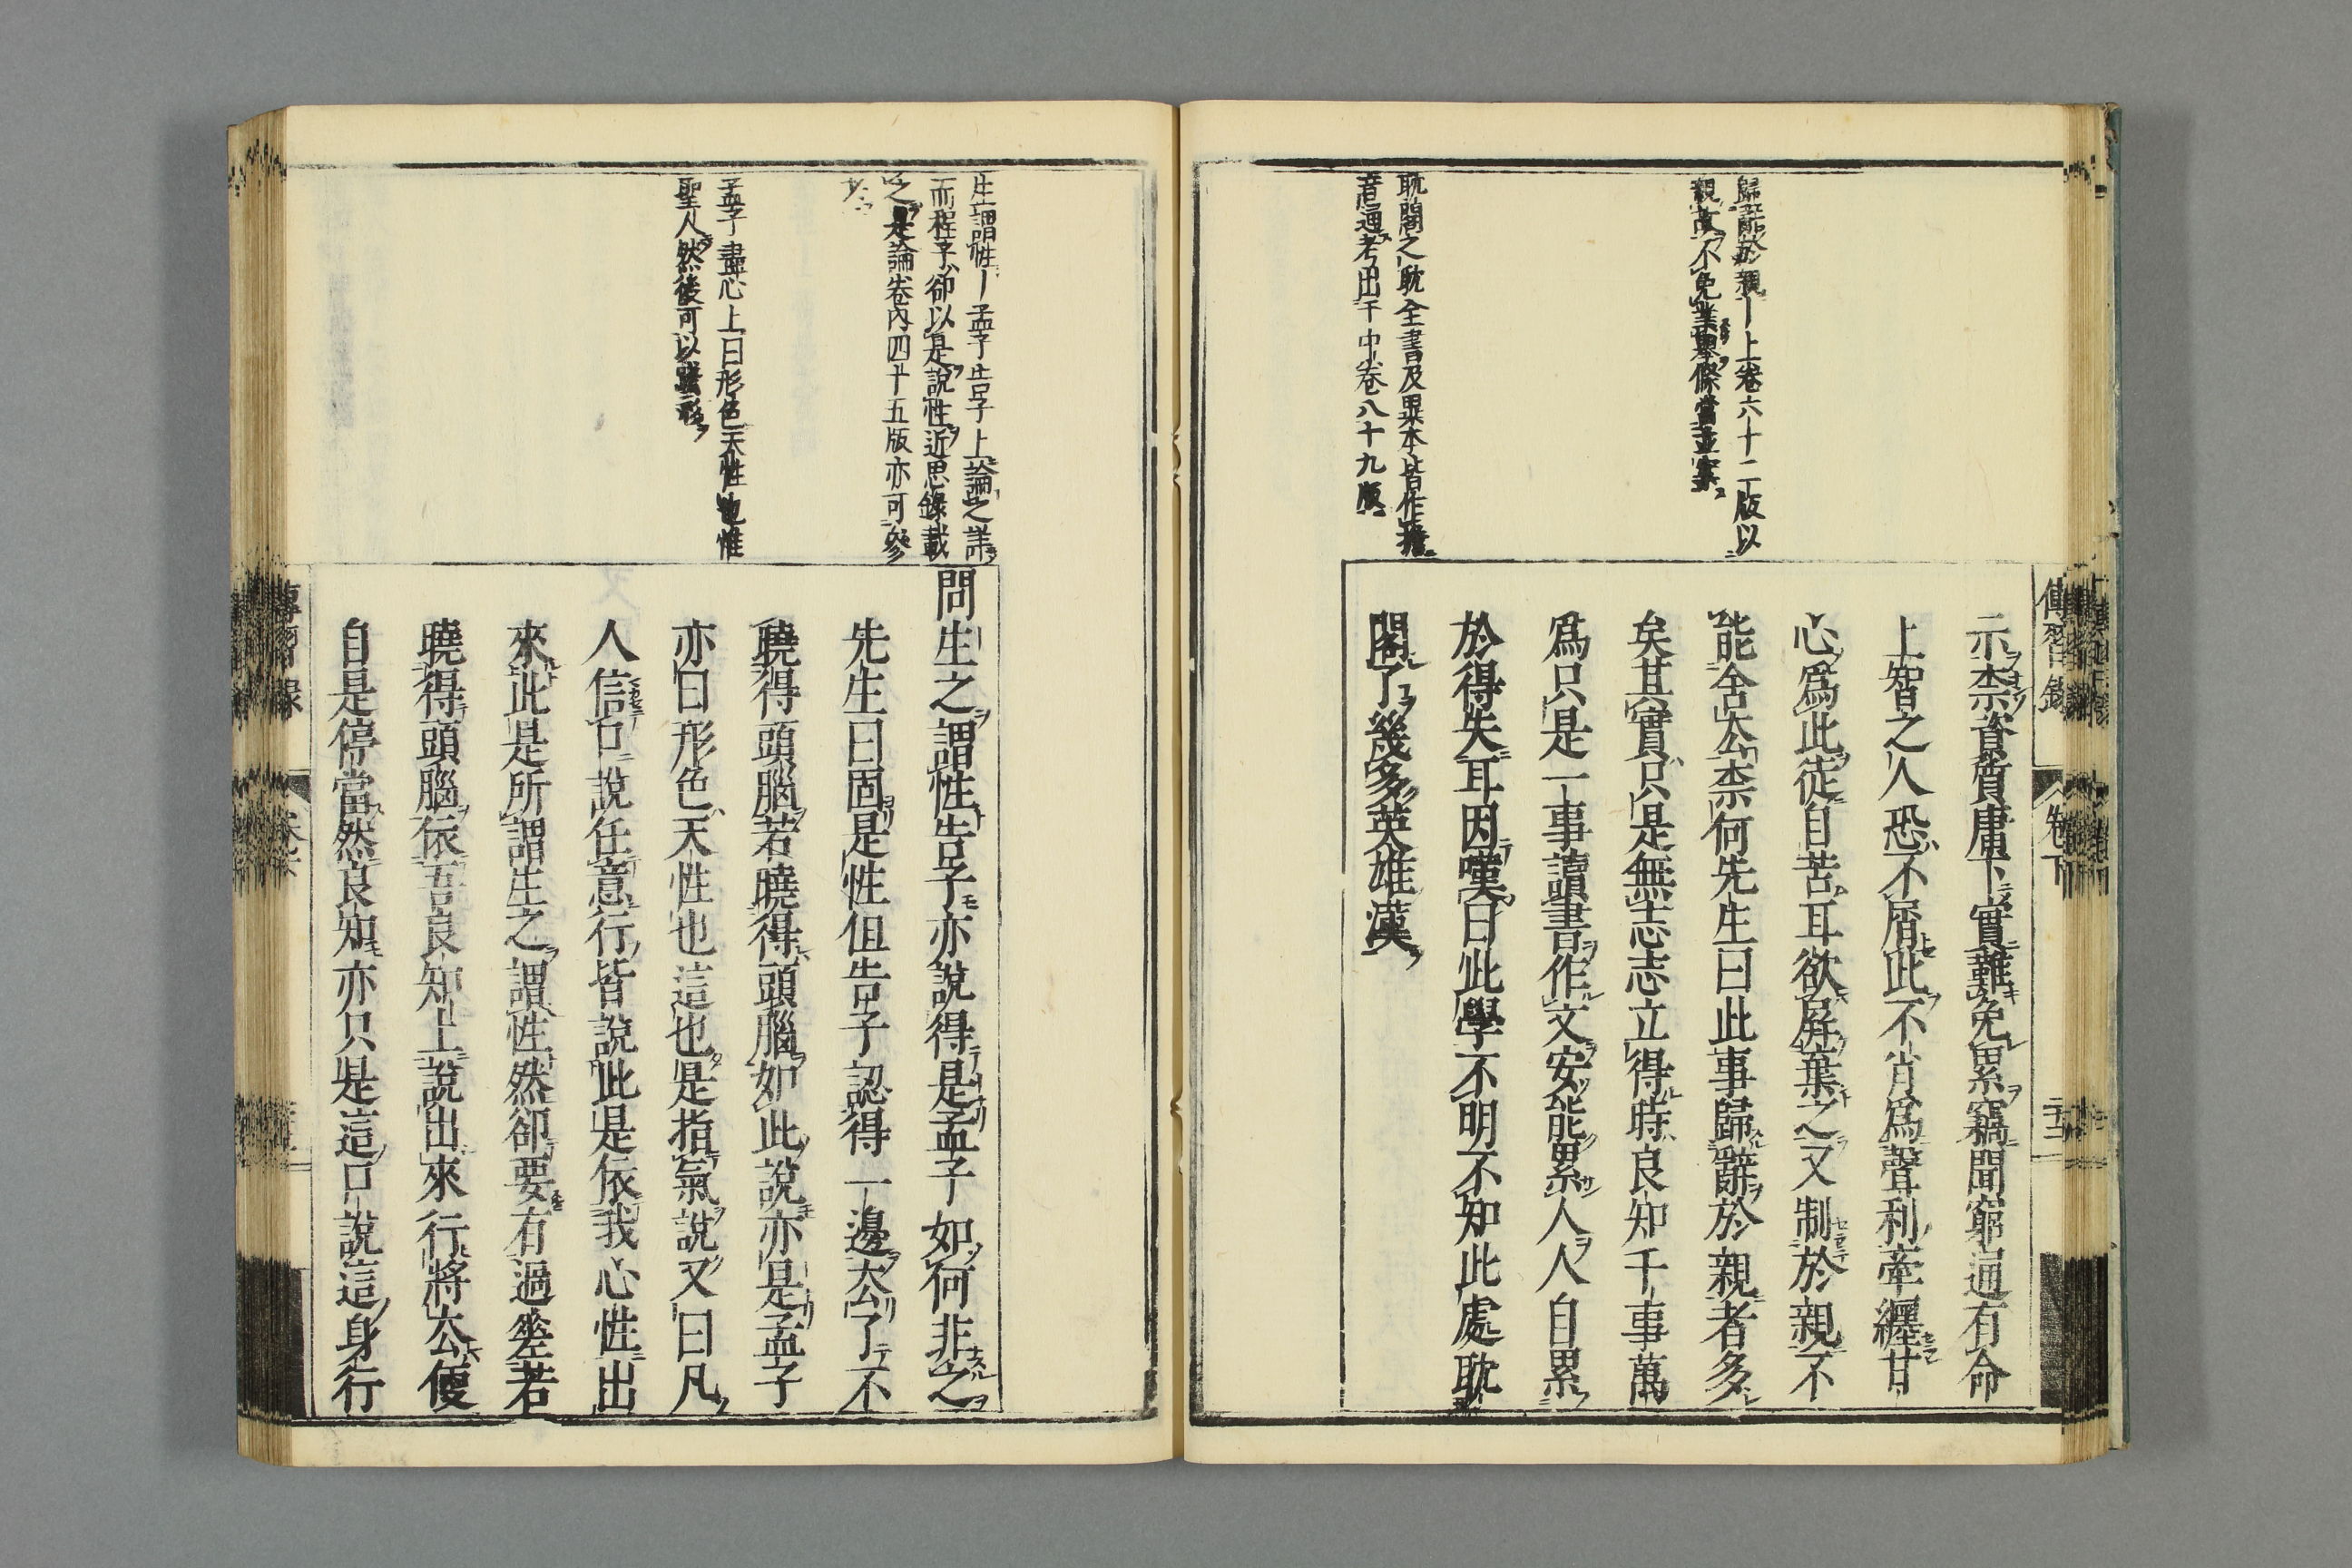 傳習錄 卷下
歸辭於親｜上卷六十二版以
親故不免業舉條當並案
耽閣之耽全書及異本皆作擔
者通考出于中卷八十九版
示柰資質庸下實難免累竊聞窮通有命
上智之人恐不屑此不肖爲聲利牽纏甘
心爲此徒自苦耳欲屏棄之又制於親不
能舍去柰何先生曰此事歸辭於親者多
矣其實只是無志志立得時良知千事萬
爲只是一事讀書作文安能累人人自累
於得失耳因嘆曰此學不明不知此處耽
閣了幾多英雄漢
生謂性｜孟子告子上論之詳
而程子卻以是說性近思錄載
之是論卷內四十五版亦可參
孟子盡心上曰形色天性也惟
聖人然後可以踐形
問生之謂性告子亦說得是孟子如何非之
先生曰固是性但告子認得一邊去了不
曉得頭腦若曉得頭腦如此說亦是孟子
亦曰形色天性也這也是指氣說又曰凡
人信口說任意行皆說此是依我心性出
來此是所謂生之謂性然卻要有過差若
曉得頭腦依吾良知上說出來行將去便
自是停當然良知亦只是這口說這身行
傳習錄